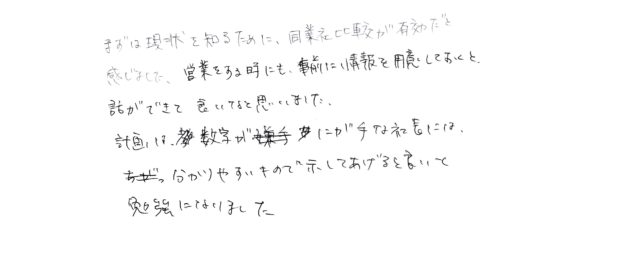 まずは現状を知るために、同業社比較が有効だと
感じました。営業をする時にも、事前に情報を用意しておくと、
話ができて良いなと思いました。
計画は、数字がにが手な社長には、
分かりやすいもので示してあげると良いと
勉強になりました